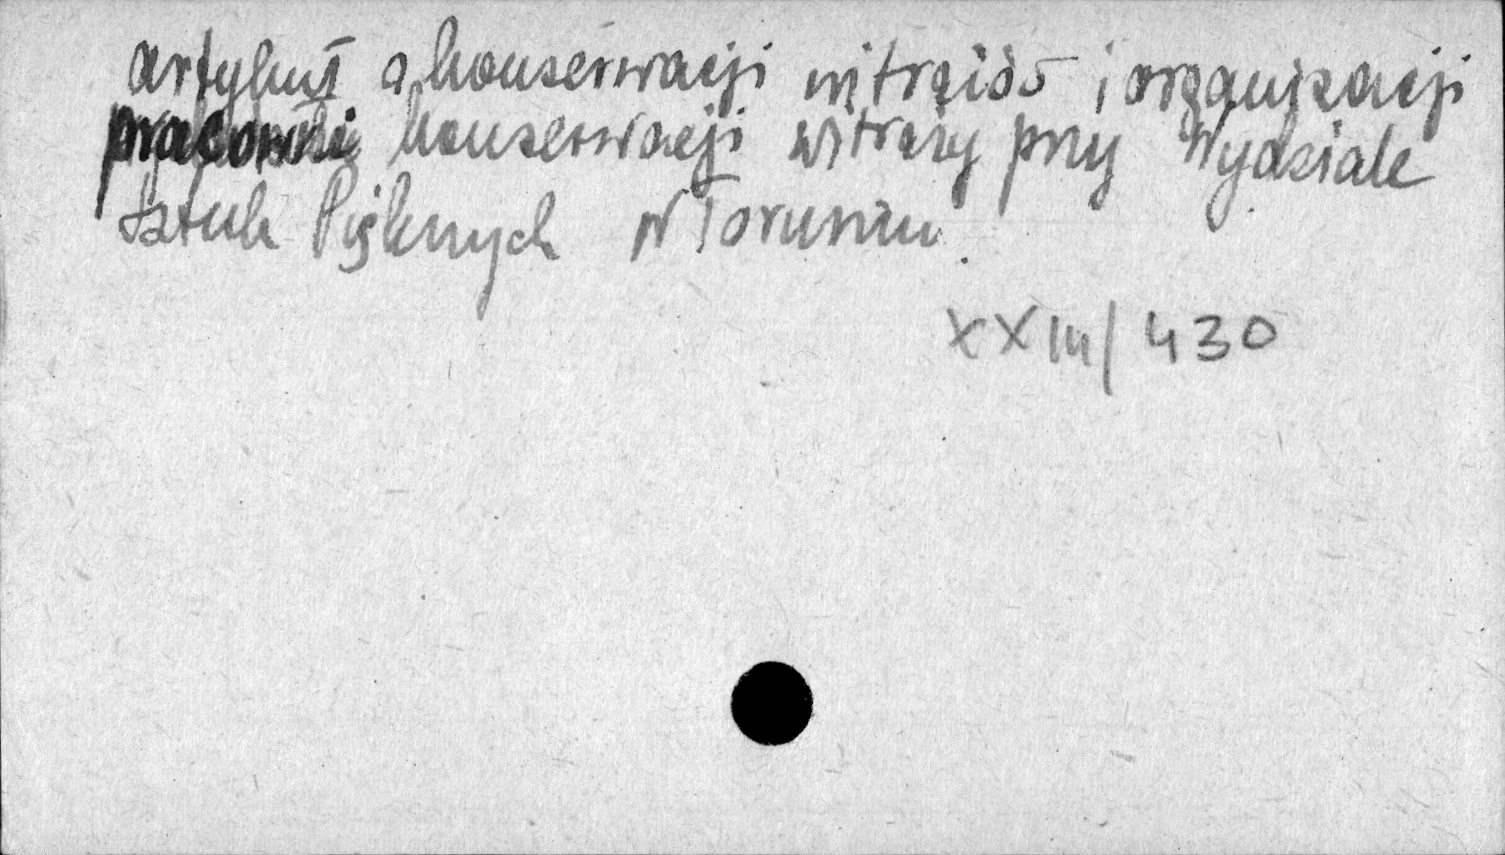 artykuł o konserwacji witraży i organizacji
pracowni konserwacji witraży przy Wydziale
Sztuk Pięknych w Toruniu.
XXIII/430